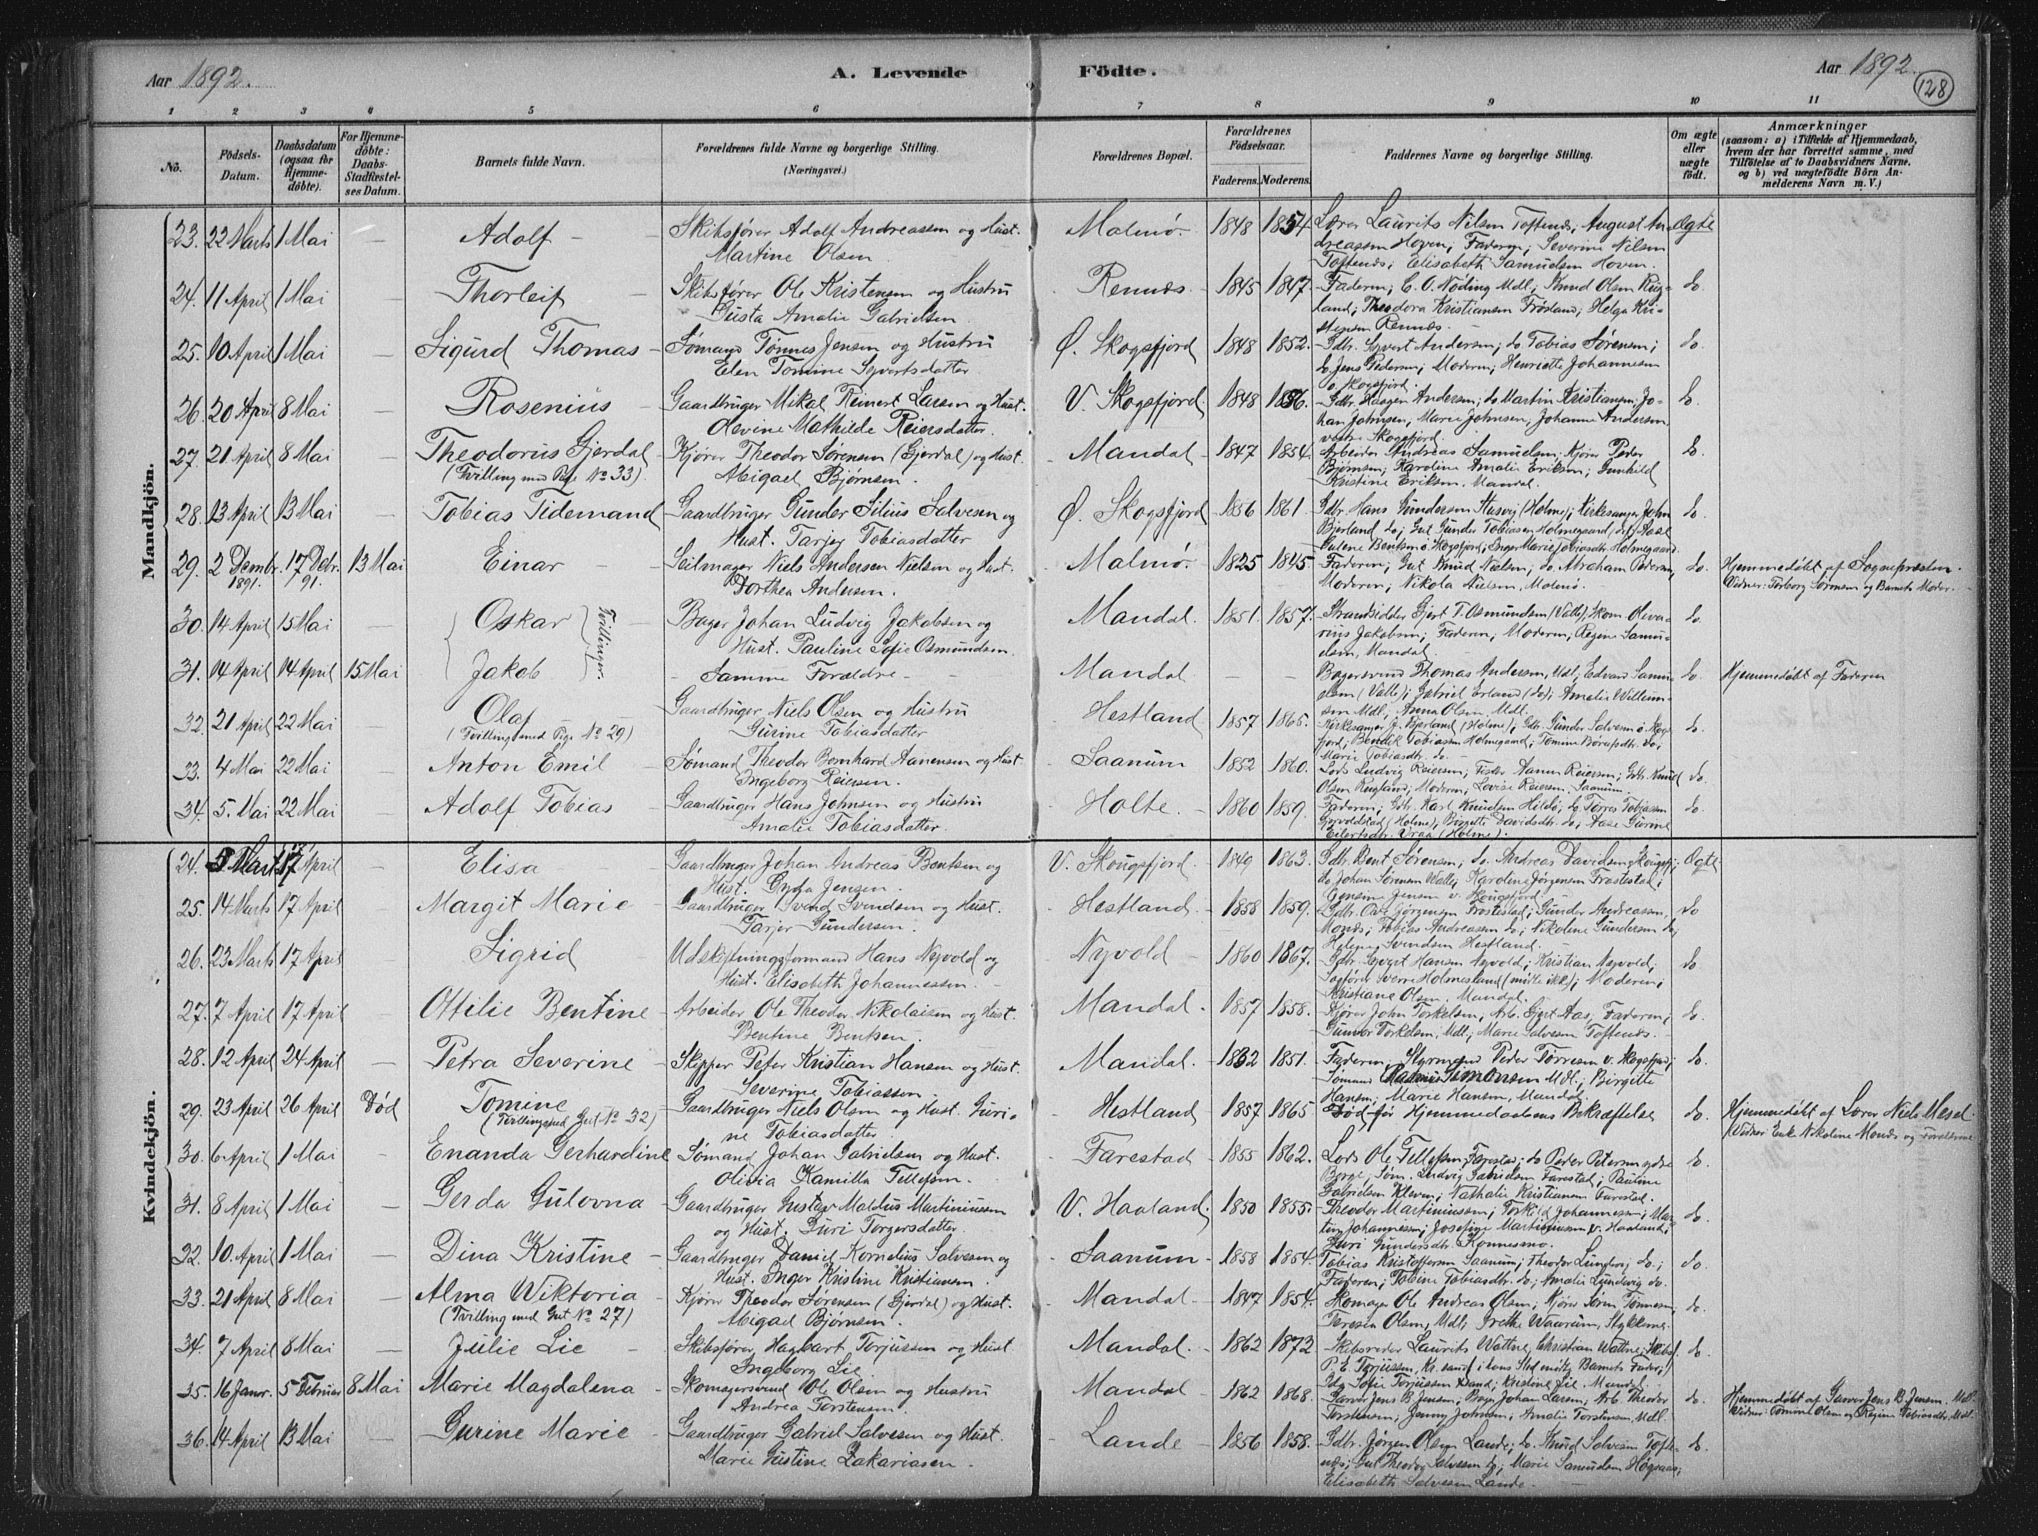 Aar 1892.
A. Levende Födte.
Aar 1892.
128
1 2 3 4 5 6 7 8 9 10 11
No.
Födsels-Datum.
Daabsdatum (ogsaa for Hjemmedöbte).
For Hjemmedöbte: Daabs-Stadfæstelses Datum.
Barnets fulde Navn.
Forældrenes fulde Navne og borgerlige Stilling. (Næringsvei.)
Forældrenes Bopæl.
Forældrenes Födselsaar.
Faderens. Moderens.
Faddernes Navne og borgerlige Stilling.
Om ægte eller uægte födt.
Anmærkninger
(saasom: a) i Tilfælde af Hjemmedaab, hvem der har forrettet samme, med Tilföielse af to Daabsvidners Navne, og b) ved uægtefödte Börn Anmelderens Navn m. V.)
Mandkjön.
23. 22 Marts 1 Mai — Adolf — Skibsfører Adolf Andreassen og Hust. Martine Olsen Malmø. 1848 1854 Lærer Laurits Nilsen Toftenæs, August Andreassen Hoven, Faderen, Severine Nilsen Toftenæs; Elisabeth Samuelsen Hoven. Ægte
24. 11 April 1 Mai — Thorleif Skibsfører Ole Kristensen og Hustru Gusta Amalie Gabrielsen Rennæs. 1845 1847. Faderen; C. O. Nöding Mdl; Knud Olsen Rugland; Theodora Kristiansen Frøsland; Helga Kristensen Rennæs. do.
25. 10 April 1 Mai — Sigurd Thomas — Sømand Tønnes Jensen og Hustru Elen Tomine Syvertsdatter Ø. Skogsfjord 1848 1852. Gdbr. Syvert Andersen; do Tobias Sørensen; do Jens Pedersen; Moderen; Henriette Johannesen ø. Skogsfjord. do.
26. 20 April 8 Mai — Rosenius Gaardbruger Mikal Reinert Larsen og Hust. Olevine Mathilde Reiersdatter. V. Skogsfjord 1848 1856. Gdbr. Haagen Andersen; do Martin Kristiansen; Johan Johnsen, Marie Johnsen, Johanne Andersen, vestre Skogsfjord. do.
27. 21 April 8 Mai — Theodorus Gjerdal (Tvilling med Pige No 33) Kjører Theodor Sørensen (Gjerdal) og Hust. Abigael Bjørnsen. Mandal 1847 1854. Arbeider Andreas Samuelsen; Kjører Peder Bjørnsen; Karoline Amalie Eriksen; Gunhild Kristine Eriksen. Mandal. do.
28. 13 April 13 Mai — Tobias Tidemand Gaardbruger Gunder Silius Salvesen og Hust. Tarjer Tobiasdatter Ø. Skogsfjord 1856 1861. Gdbr. Hans Gundersen (Holme); Kirkesanger John Bjerland do; Gut Gunder Tobiassen Holmegaard do; Skogsfjord; Inger Marie Tobiasdtr. Holmegaard. do.
29. 2 Decmbr. 1891. 17 Dcbr. 91. 13 Mai Einar — Seilmager Niels Andersen Nielsen og Hust. Dorthea Andersen. Malmø. 1825 1845. Faderen; Gut Knud Nielsen; do Abraham Pedersen, Moderen; Nikola Nielsen, Malmø. do. Hjemmedøbt af Sognepræsten. Vidner: Torborg Sørensen og Barnets Moder.
30. 14 April 15 Mai — Oskar Tvillinger Bager Johan Ludvig Jakobsen og Hust. Pauline Sofie Osmundsen. Mandal. 1851. 1857. Strandsidder Gjert T. Osmundsen (Valle), Skom. Olevarius Jakobsen; Faderen; Moderen; Regine Samuelsen, Mandal. do.
31. 14 April 14 April 15 Mai Jakob — Samme Forældre — Mandal — — Bagersvend Thomas Andersen, Mdl; Edvard Samuelsen (Valle); Gabriel Erland (do); Amalie Willumsen Mdl, Anna Olsen Mdl. do. Hjemmedøbt af Faderen
32. 21 April 22 Mai — Olaf (Tvilling med Pige No 29) Gaardbruger Niels Olsen og Hustru Gurine Tobiasdatter Hestland 1857 1865. Kirkesanger J. Bjerland (Holme); Gdbr. Gunder Salvesen ø Skogsfjord; Bendik Tobiasen Holmegaard; Tomine do; Marie Tobiasdtr. do. do.
33. 4 Mai 22 Mai — Anton Emil — Sømand Theodor Bernhard Aanensen og Hust Ingeborg Reiersen. Saanum 1852 1860. Lods Ludvig Reiersen; Fisker Aanen Reiersen; Gdbr. Knud Olsen Rugland; Moderen; Lovise Reiersen, Saanum. do.
34. 5. Mai 22 Mai — Adolf Tobias — Gaardbruger Hans Johnsen og Hustru Amalie Tobiasdatter. Holte. 1860 1859. Faderen; Gdbr. Karl Knudsen Hildø; do Tørres Tobiassen (Holme), Birgitte Davidsdtr. do; Aase Gurine Eilertsdtr. Vraa (Holme). do.
Kvindekjön.
24. 5 Marts 17 April — Elisa — Gaardbruger Johan Andreas Bentsen og Hust. Gyda Jensen. V. Skougsfjord. 1849 1863. Gdbr. Bent Sørensen; do. Andreas Davidsen Skougsfj.; do Johan Sørensen Valle; Karoline Jørgensen Frostestad; Gensine Jensen v. Skougsfjord. Ægte
25. 14 Marts 17 April — Margit Marie Gaardbruger Svend Svendsen og Hust. Tarjer Gundersen. Hestland. 1858 1859. Gdbr. Ole Jørgensen Frostestad; Gunder Andreassen, Monæs; Tobias Andreassen do; Nikoline Gundersen do; Helene Svendsen Hestland. do
26. 23 Marts 17 April — Sigrid Udskiftningsformand Hans Nyvold og Hust. Elisabeth Johannessen. Nyvold 1860 1867. Gdbr. Syvert Hansen Nyvold; Kristian Nyvold; Sagfører Sverre Holmesland (mötte ikke); Moderen; Kristiane Olsen. Mandal. do
27. 7 April 17 April — Ottilie Bentine Arbeider Ole Theodor Nikolaisen og Hust. Bentine Bentsen. Mandal. 1857 1858. Kjører John Torkelsen, Arb. Gjert Aas; Faderen; Gunvor Torkelsen, Mdl; Marie Salvesen Toftenæs. do.
28. 12 April 24 April — Petra Severine — Skipper Peter Kristian Hansen og Hust. Severine Tobiassen. Mandal. 1832 1851. Faderen; Styrmand Peder Tørresen v. Skogsfjord; Sømand Rasmus Simonsen Mdl; Birgitte Hansen, Marie Hansen, Mandal. do.
29. 23 April 26 April Død Tomine (Tvilling med Gut No 32) Gaardbruger Niels Olsen og Hust. Gurine Tobiasdatter. Hestland 1857 1865 Død før Hjemmedaabens Bekræftelse do. Hjemmedøbt af Lærer Niels Mesel (Vidner Enk. Nikoline Monæs og Forældrene
30. 6 April 1 Mai — Enanda Gerhardine Sømand Johan Gabrielsen og Hust. Olivia Kamilla Tellefsen. Farestad 1855 1862. Lods Ole Tellefsen, Farestad; do Peder Petersen ydre Borge; Søm. Ludvig Gabrielsen Farestad; Pauline Gabrielsen Kleven; Nathalie Kristiansen Farestad. do.
31. 8 April 1 Mai — Gerda Gulovna Gaardbruger Gustav Maldus Martiniussen og Hust. Guri Torgersdatter. V. Haaland. 1850 1855. Theodor Martiniussen; Torkild Johannessen; Marten Johannessen; Josefine Martiniussen v. Haaland; Guri Gundersdtr. Konnesmo. do.
32. 10. April 1 Mai — Dina Kristine Gaardbruger Daniel Kornelius Salvesen og Hust. Inger Kristine Kristiansen. Saanum 1858 1854. Tobias Kristoffersen Saanum; Theodor do; Faderen; Tobine Tobiasdtr. do; Amalie Lundvig do. do.
33. 21 April 8 Mai — Alma Viktoria (Tvilling med Gut No 27) Kjører Theodor Sørensen (Gjerdal) og Hust. Abigael Bjørnsen. Mandal 1847 1854. Skomager Ole Andreas Olsen; Kjører Søren Tønnesen; Teresia Olsen, Mdl; Grethe Waarum, Stykkerne. do.
34. 7 April 8 Mai — Julie Lie Skibsfører Hagbart Torjussen og Hust Ingeborg Lie. Mandal. 1862 1872 Skibsreder Laurits Wattne, Christian Wattne; Skibsf. P. E. Torjussen, Kr.sand; i hans Sted mötte Barnets Fader; Sofie Torjussen Kr.sand; Kristine Lie. Mandal. do.
35. 16 Janr. 5 Februar 8 Mai Marie Magdalena Skomagersvend Ole Olsen og Hustru Andrea Torstensen. Mandal 1862 1868. Garver Jens B. Jensen; Bager Johan Larsen; Arb. Theodor Torstensen; Jenny Johnsen; Amalie Torstensen Mdl. do. Hjemmedøbt af Garver Jens B. Jensen. Mdl. Vidner: Tomine Olsen og Regine Tobiasdtr. Mdl.
36. 14 April 13 Mai — Gurine Marie Gaardbruger Gabriel Salvesen og Hust. Marie Gustine Zakariasen. Lande 1856 1858. Gdbr. Jørgen Olsen Lande; do. Knud Salvesen Toftenæs; Gut Theodor Salvesen do; Marie Samuelsen Høgsaas; Elisabeth Salvesen Lande. do.